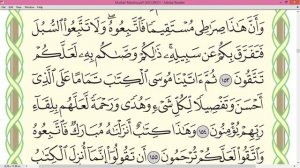 وَأَنَّ هَٰذَا صِرَٰطِى مُسْتَقِيمًا فَٱتَّبِعُوهُ ۖ وَلَا تَتَّبِعُوا۟ ٱلسُّبُلَ
فَتَفَرَّقَ بِكُمْ عَن سَبِيلِهِۦ ۚ ذَٰلِكُمْ وَصَّىٰكُم بِهِۦ لَعَلَّكُمْ
تَتَّقُونَ ١٥٣ ثُمَّ ءَاتَيْنَا مُوسَى ٱلْكِتَٰبَ تَمَامًا عَلَى ٱلَّذِىٓ
أَحْسَنَ وَتَفْصِيلًا لِّكُلِّ شَىْءٍ وَهُدًى وَرَحْمَةً لَّعَلَّهُم بِلِقَآءِ
رَبِّهِمْ يُؤْمِنُونَ ١٥٤ وَهَٰذَا كِتَٰبٌ أَنزَلْنَٰهُ مُبَارَكٌ فَٱتَّبِعُوهُ
وَٱتَّقُوا۟ لَعَلَّكُمْ تُرْحَمُونَ ١٥٥ أَن تَقُولُوٓا۟ إِنَّمَآ أُنزِلَ ٱلْكِتَٰبُ